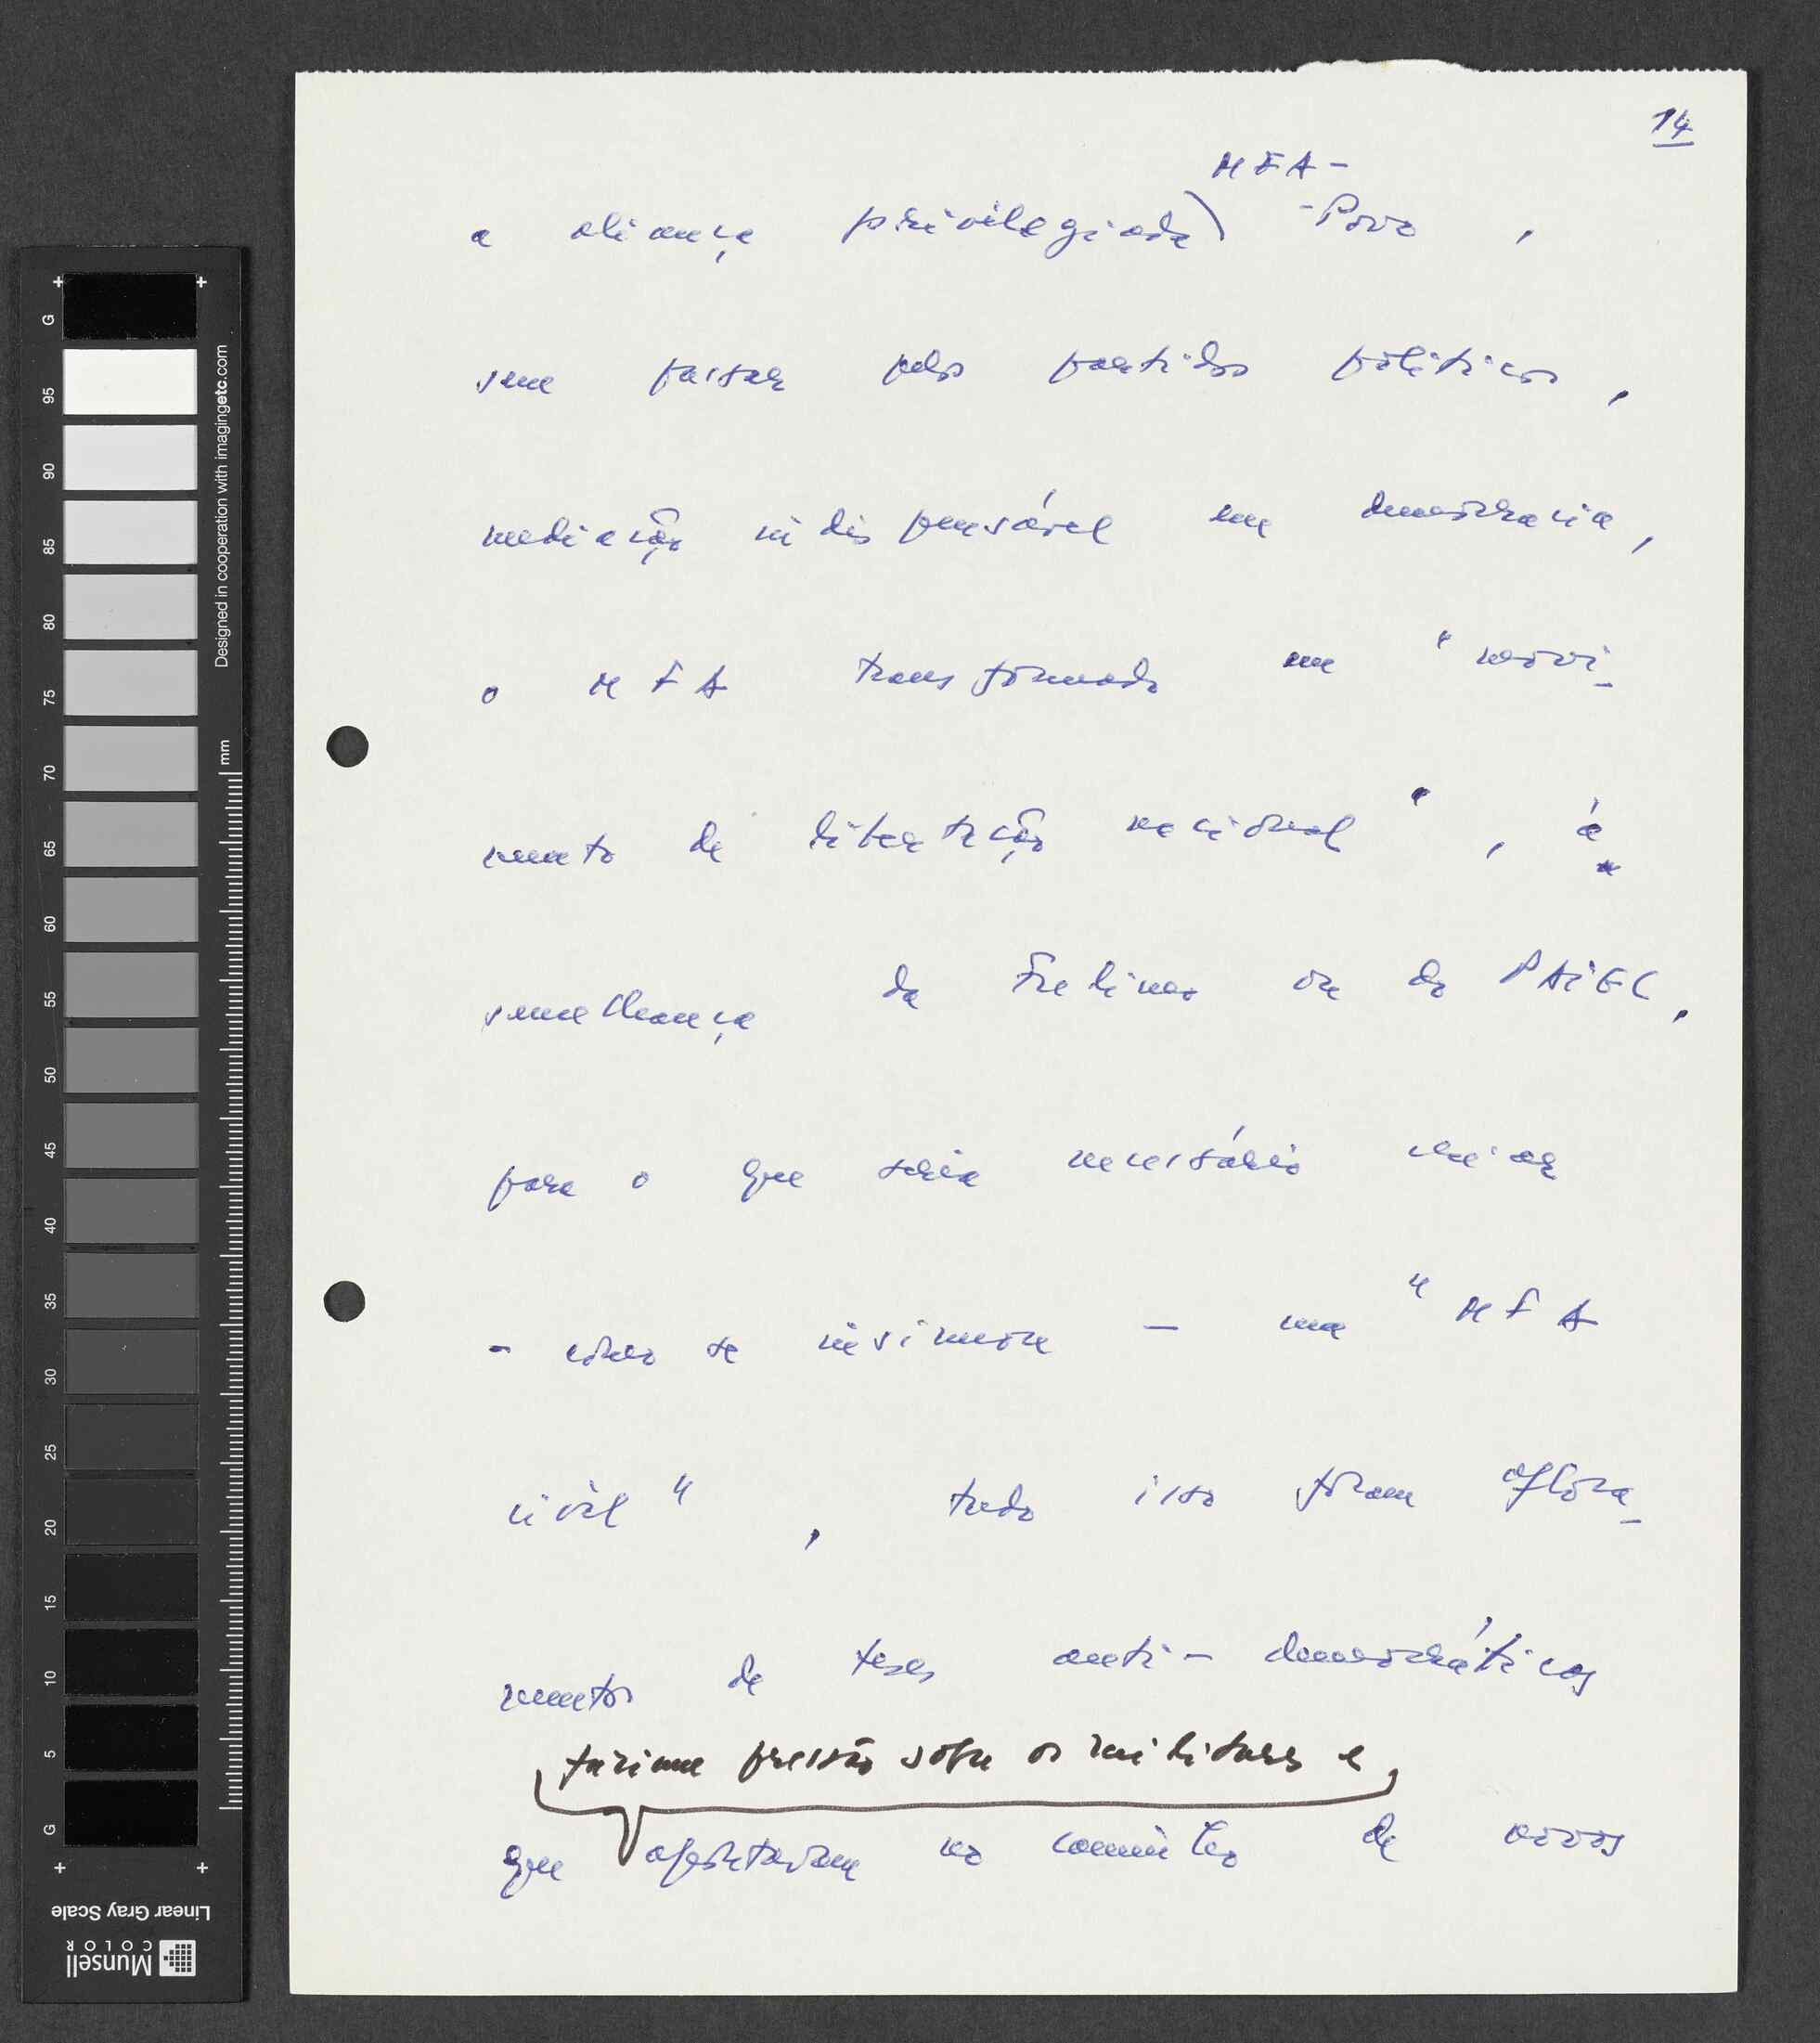 14
MFA-
a aliança privilegiada) -Povo ,
sem passar pelos partidos políticos,
mediação indispensável em democracia,
o MFA transformado em "movi-
mento de libertação nacional", à
semelhança da Frelimo ou do PAIGC,
para o que seria necessário criar
- como se insinuou - um "MFA
civil", tudo isso foram aflora-
mentos de teses anti-democráticas
faziam pressão sobre os militares e
que apostavam no caminho de novos
G
95
90
85
80
75
70
65
60
55
50
45
40
35
30
25
20
15
10
5
G
mm
Designed in cooperation with imagingetc.com
Linear Gray Scale
Munsell
COLOR